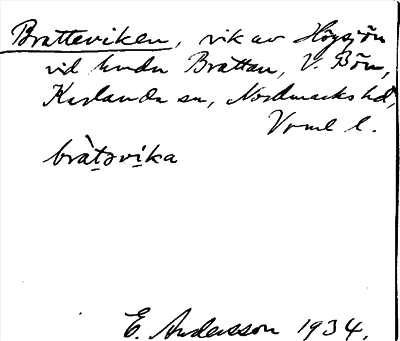 Bratteviken, vik av Högsjön
vid hmdn Brattan, V. Bön,
Karlanda sn, Nordmarks hd,
Vrml l.
bràtəvika
E. Andersson 1934.